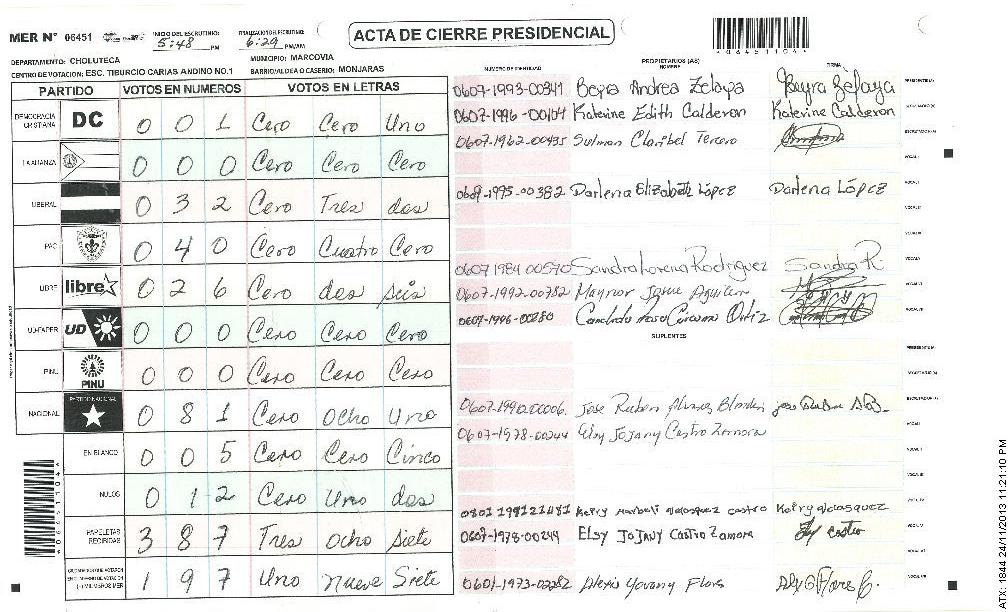 MER N° 06451 INICIO DEL ESCRUTINIO: 5:48 PM FINALIZACION DEL ESCRUTINIO: 6:29 PM/AM
ACTA DE CIERRE PRESIDENCIAL
DEPARTAMENTO: CHOLUTECA MUNICIPIO: MARCOVIA
CENTRO DE VOTACION: ESC. TIBURCIO CARIAS ANDINO NO.1 BARRIO/ALDEA O CASERIO: MONJARAS
PARTIDO VOTOS EN NUMEROS VOTOS EN LETRAS
DEMOCRACIA CRISTIANA DC 0 0 1 Cero Cero Uno
LA ALIANZA 0 0 0 Cero Cero Cero
LIBERAL 0 3 2 Cero Tres dos
PAC 0 4 0 Cero Cuatro Cero
LIBRE libre 0 2 6 Cero dos seis
UD-FAPER UD 0 0 0 Cero Cero Cero
PINU PINU 0 0 0 Cero Cero Cero
NACIONAL PARTIDO NACIONAL 0 8 1 Cero Ocho Uno
EN BLANCO 0 0 5 Cero Cero Cinco
NULOS 0 1 2 Cero Uno dos
PAPELETAS RECIBIDAS 3 8 7 Tres Ocho Siete
1 9 7 Uno nueve Siete
NUMERO DE IDENTIDAD PROPIETARIOS (AS) NOMBRE FIRMA
0607-1993-00341 Beyra Andrea Zelaya Beyra Zelaya
0607-1996-00104 Katerine Edith Calderon Katerine Calderon
0607-1962-00435 Sulman Claribel Tercero
0607-1995-00382 Darlena Elizabeth López Darlena López
0607 1984 00570 Sandra Lorena Rodriguez Sandra R.
0607-1992-00782 Maynor Aguilera
0607-1996-00280 Ortiz
SUPLENTES
Jose Ruben
0607-1978-00244 Elsy Jojany Castro Zamora
0801 Velasquez Castro Velasquez
0607-1978-00244 Elsy Jojany Castro Zamora Elsy Castro
0601-1973-02282 Alexis Yovany Flores
064511044
ATX: 1844 24/11/2013 11:21:10 PM